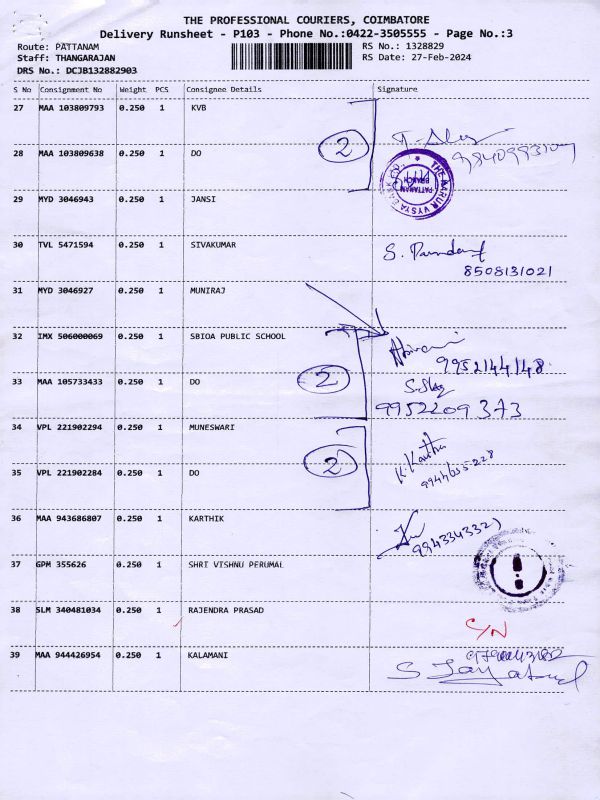 THE PROFESSIONAL COURIERS, COIMBATORE
Delivery Runsheet - P103 - Phone No.:0422-3505555 - Page No.:3
Route: PATTANAM RS No.: 1328829
Staff: THANGARAJAN RS Date: 27-Feb-2024
DRS No.: DCJB132882903
S No Consignment No Weight PCS Consignee Details Signature
27 MAA 103809793 0.250 1 KVB
28 MAA 103809638 0.250 1 DO 2
THE KARUR VYSYA BANK LTD.
PATTANAM BRANCH
29 MYD 3046943 0.250 1 JANSI
30 TVL 5471594 0.250 1 SIVAKUMAR S.
8508131021
31 MYD 3046927 0.250 1 MUNIRAJ
32 IMX 506000069 0.250 1 SBIOA PUBLIC SCHOOL
9952144148
33 MAA 105733433 0.250 1 DO 2
9952209373
34 VPL 221902294 0.250 1 MUNESWARI
35 VPL 221902284 0.250 1 DO 2 K. Kavitha
36 MAA 943686807 0.250 1 KARTHIK
37 GPM 355626 0.250 1 SHRI VISHNU PERUMAL
38 SLM 340481034 0.250 1 RAJENDRA PRASAD C/N
39 MAA 944426954 0.250 1 KALAMANI